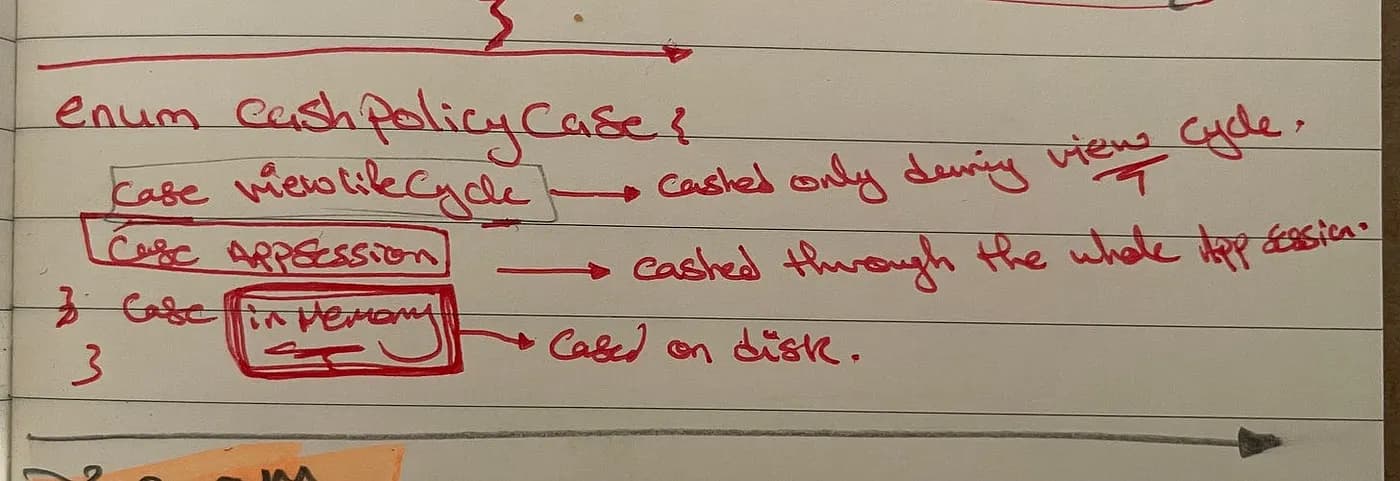 }
enum CashPolicyCase {
case viewLifeCycle → Cashed only during view Cycle.
Case AppSession → Cashed through the whole App Session.
} Case in Memory → Cased on disk.
}